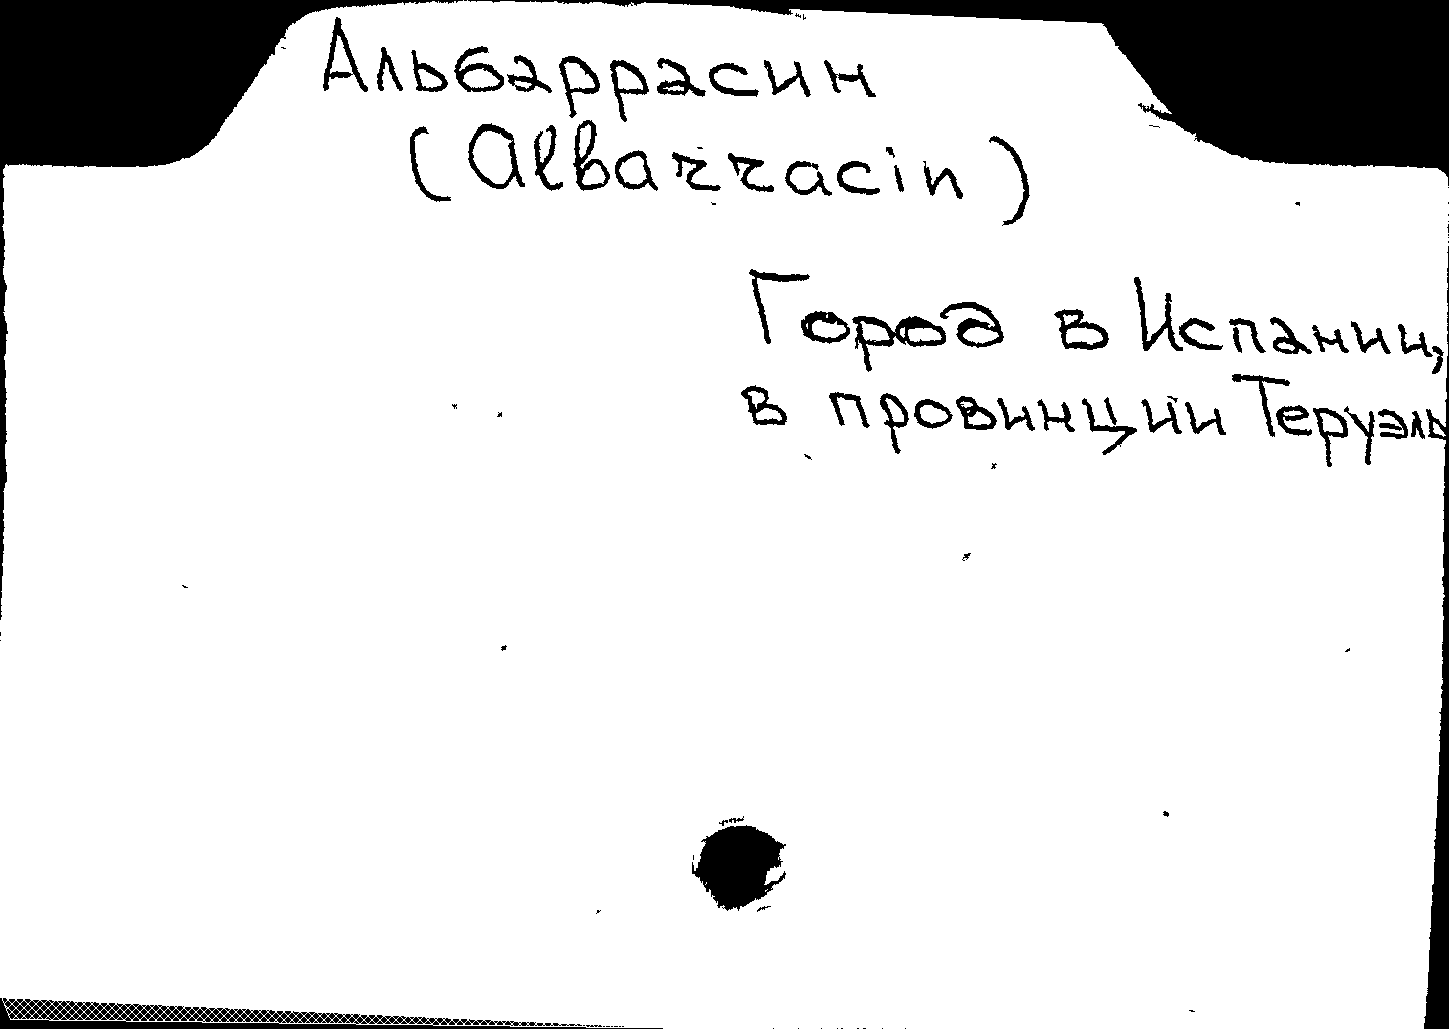 Альбаррасин
(Albarracin)
Город в Испании,
в провинции Теруэль